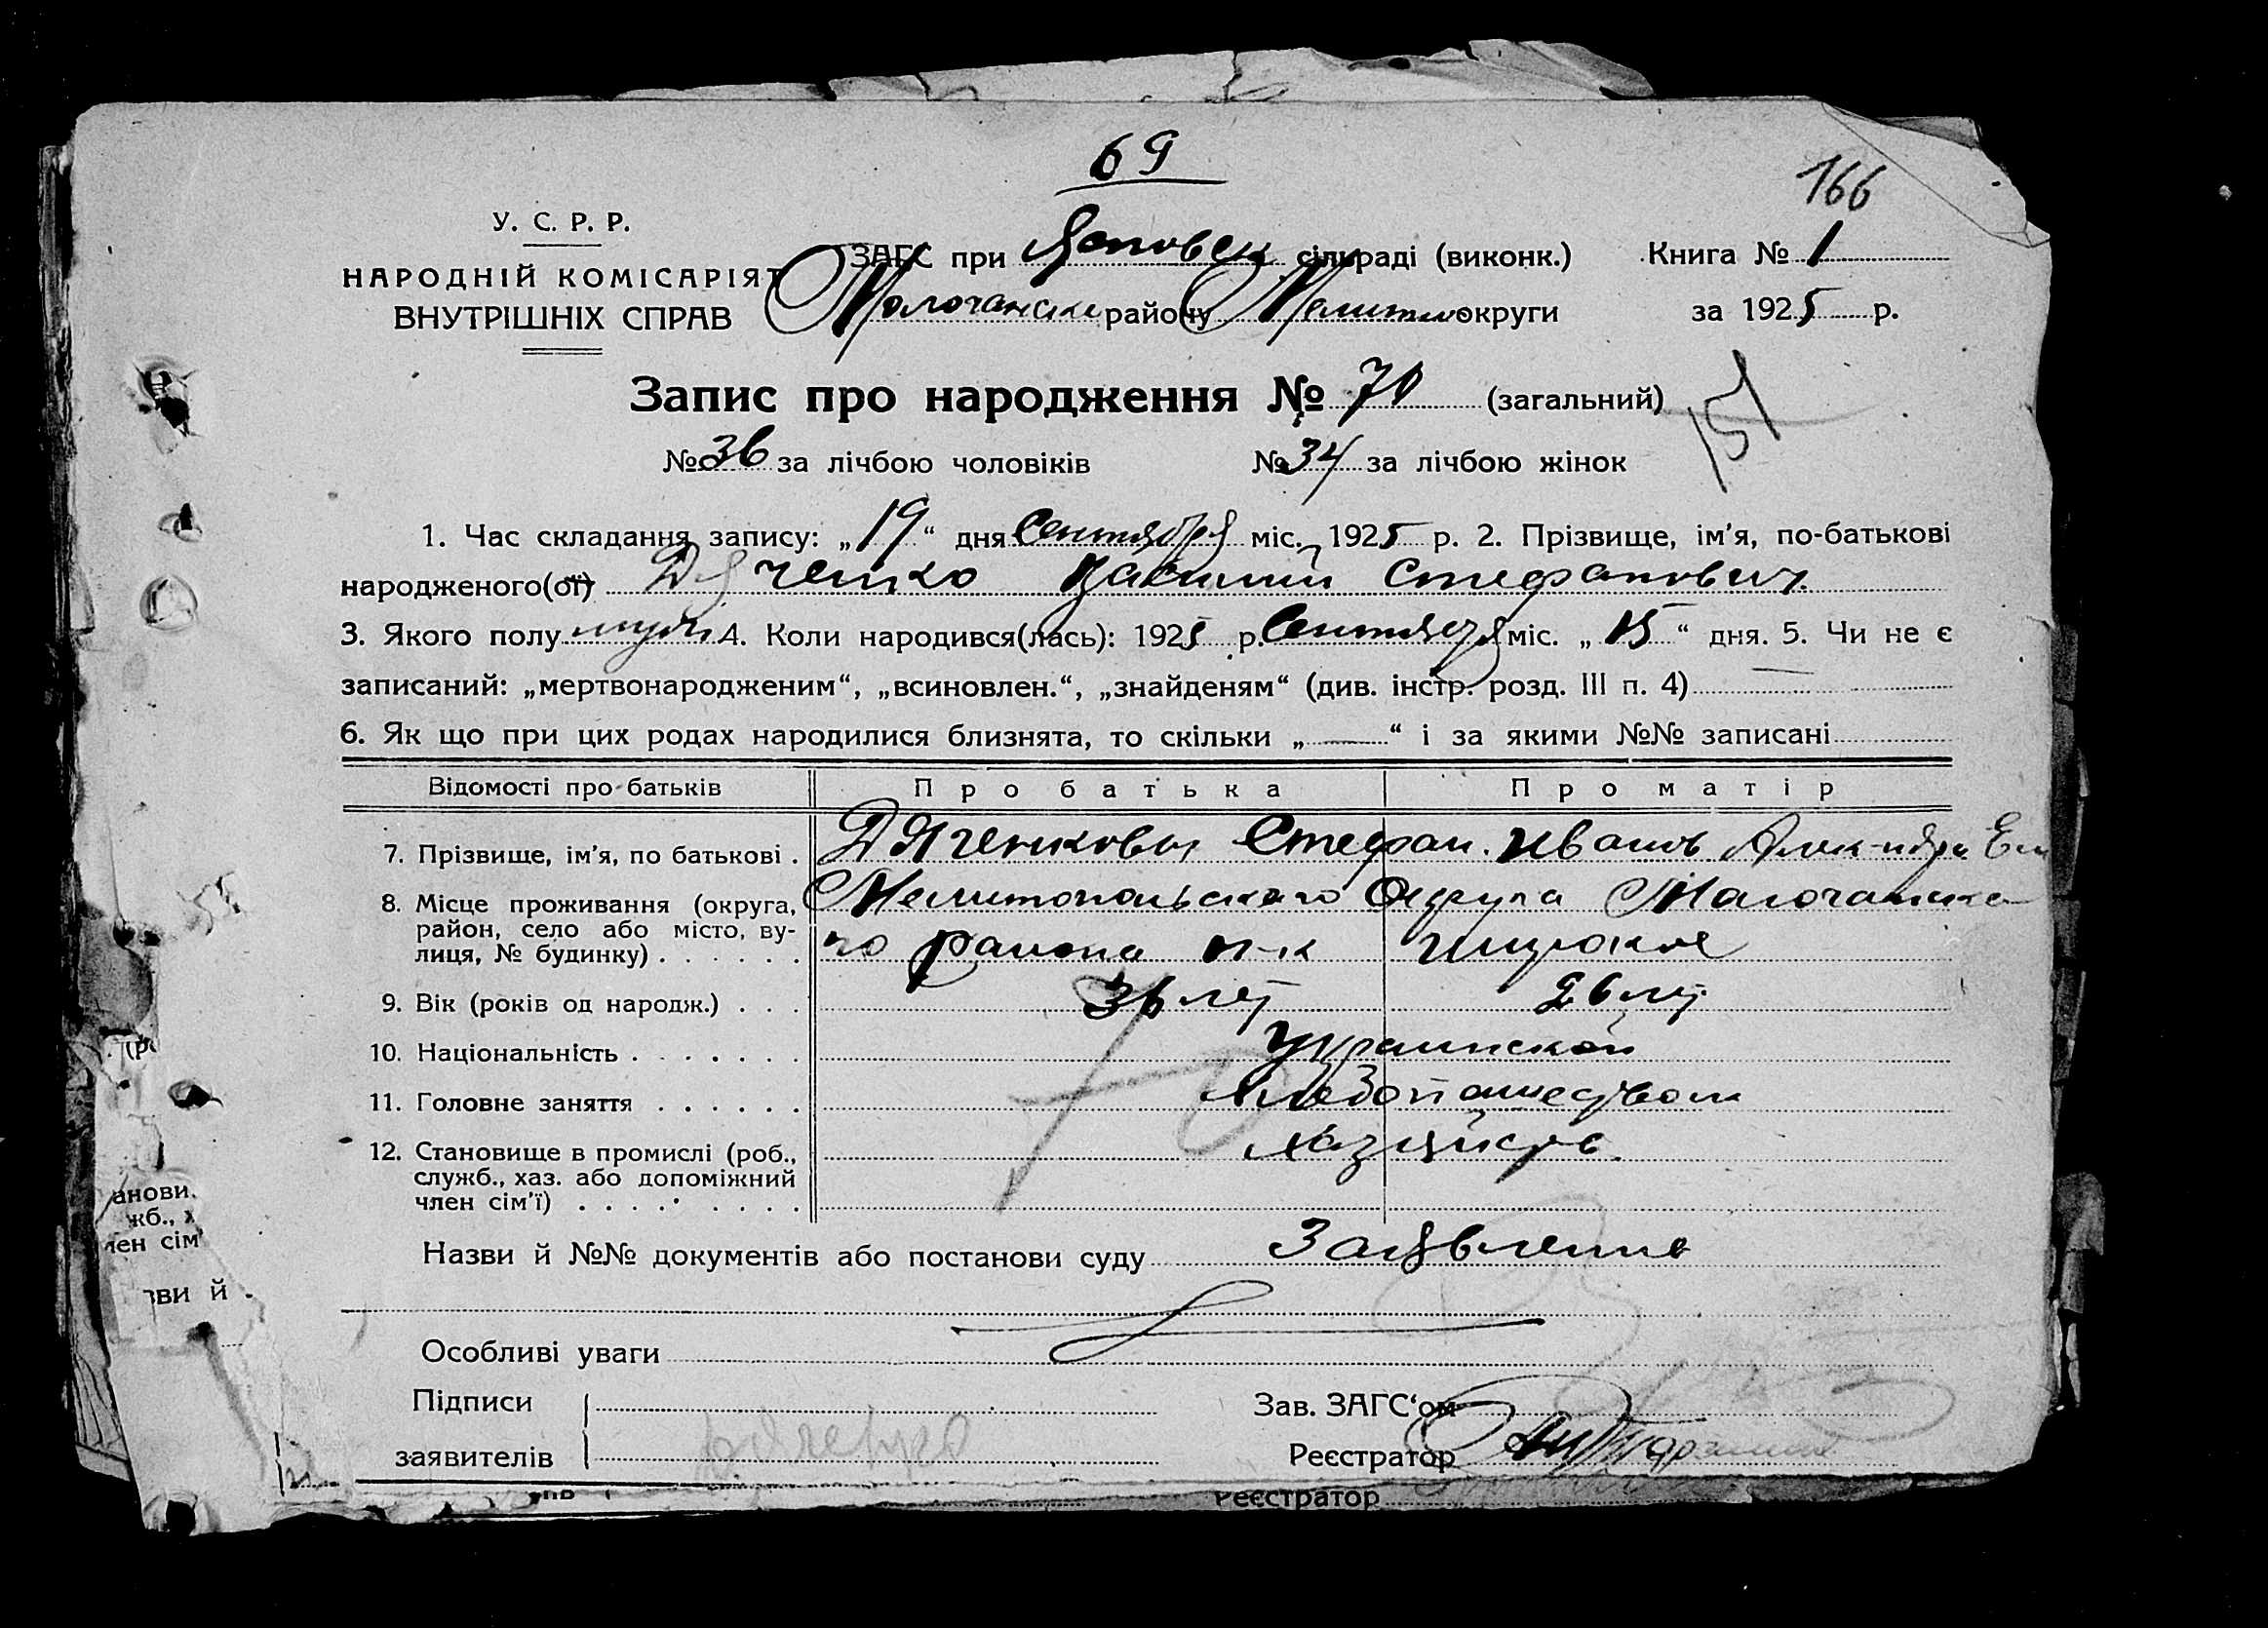 69
166
У. С. Р. Р.
НАРОДНІЙ КОМІСАРІЯТ
ВНУТРІШНІХ СПРАВ
ЗАГС при сільраді (виконк.) Книга № 1
Молочанске району Мелитоп округи за 1925 р.
Запис про народження № 70 (загальний)
151
№ 36 за лічбою чоловіків № 34 за лічбою жінок
1. Час складання запису: „19“ дня Сентября міс. 1925 р. 2. Прізвище, ім'я, по-батькові
народженого(ої) Дяченко Василий Стефанович
3. Якого полу муж. 4. Коли народився(лась): 1925 р. Сентября міс. „15“ дня. 5. Чи не є
записаний: „мертвонародженим“, „всиновлен.“, „знайденям“ (див. інстр. розд. III п. 4)
6. Як що при цих родах народилися близнята, то скільки „—“ і за якими №№ записані
Відомості про батьків Про батька Про матір
7. Прізвище, ім'я, по батькові . Дяченковы Стефан. Иванов Алек-ндра
8. Місце проживання (округа, Мелитопольскаго Округа Молочанска
район, село або місто, ву-
лиця, № будинку) . . . . . . го района п-к Широкое
9. Вік (років од народж.) . . . 36 лет 26 лет
10. Національність . . . . . . . Украинской
11. Головне заняття . . . . . . хлебопашеством
12. Становище в промислі (роб.,
служб., хаз. або допоміжний
член сім'ї) . . . . . . . . .
70
Назви й №№ документів або постанови суду Заявление
Особливі уваги
Підписи
заявителів Дяченко
Зав. ЗАГС'ом
Реєстратор
анови.
жб., х
лен сім'
зви й
Реєстратор